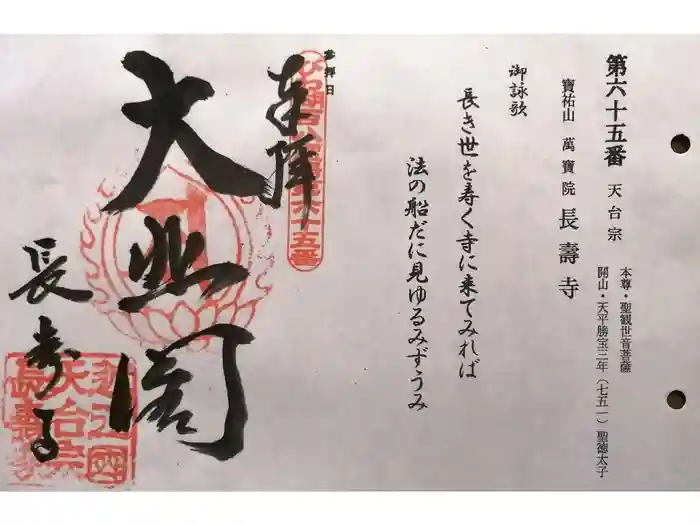 第六十五番 天台宗
本尊・聖観世音菩薩
開山・天平勝宝三年(七五一)聖徳太子
寶祐山 萬寶院 長壽寺
御詠歌
長き世を寿く寺に来てみれば
法の船だに見ゆるみずうみ
参拝日
奉拝
大悲閣
長寿寺
近江國
天台宗
長壽寺